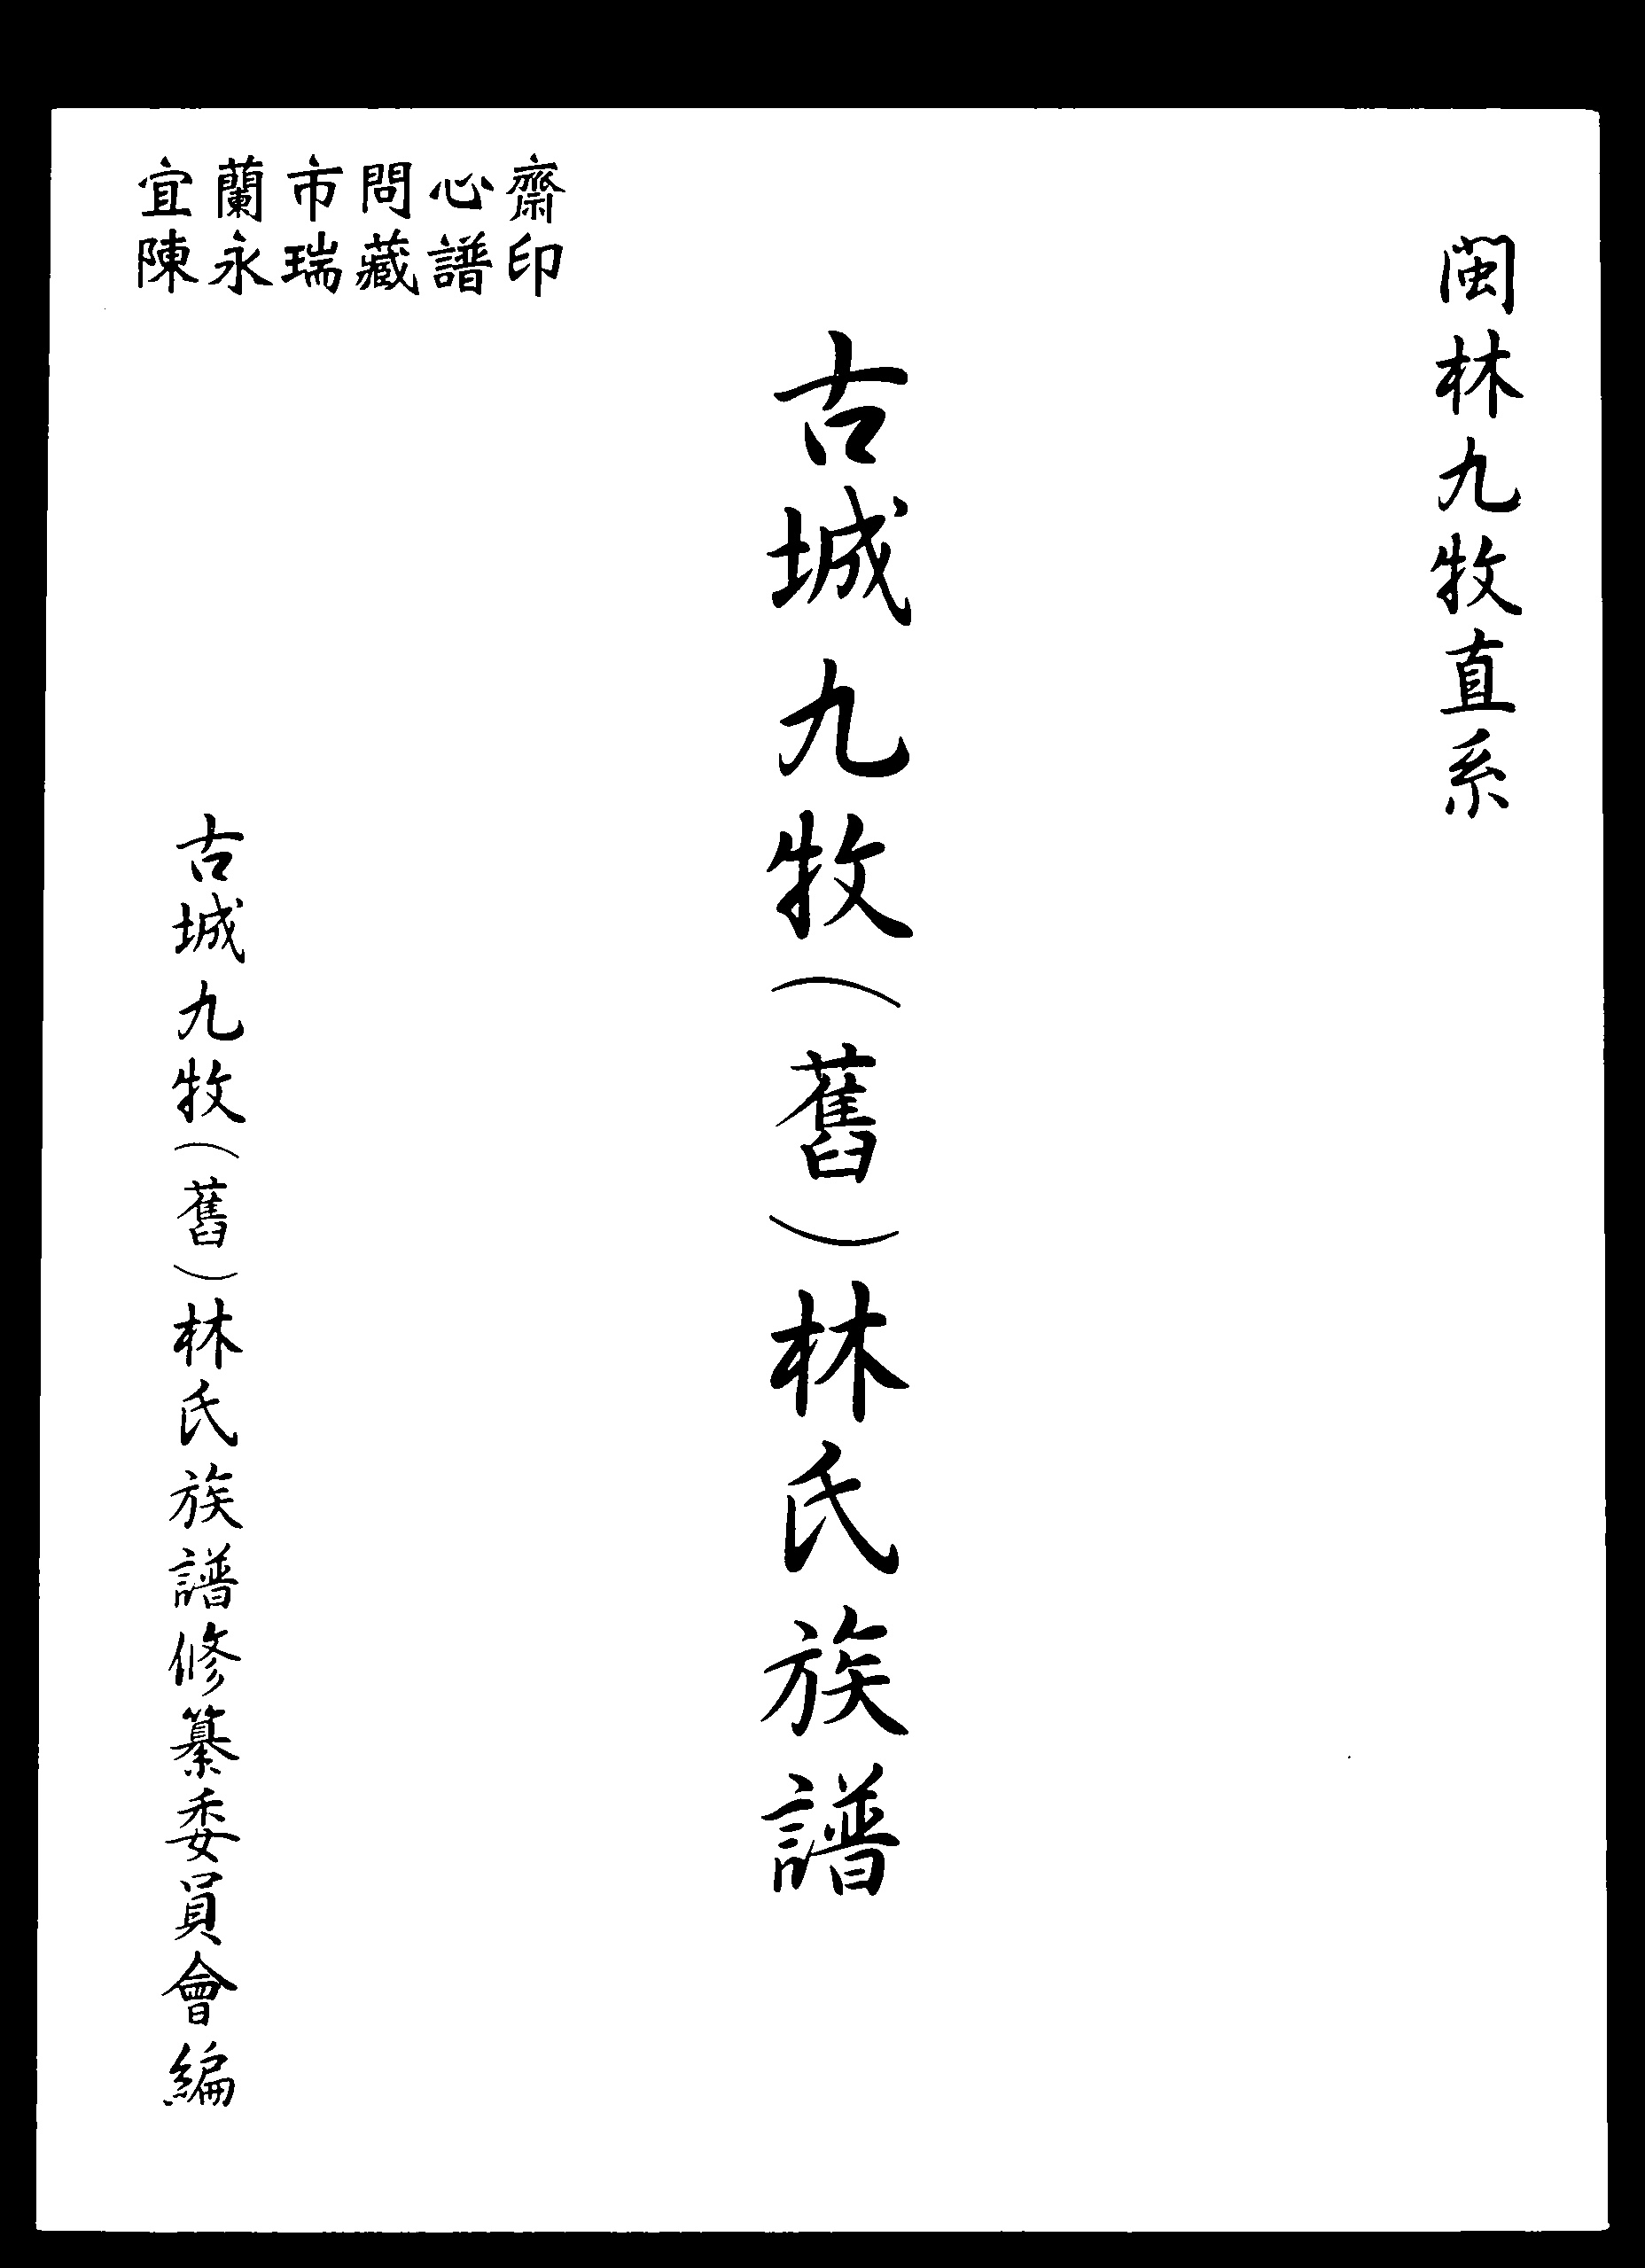 閩林九牧直系
古城九牧(舊)林氏族譜
宜蘭市問心齋
陳永瑞藏譜印
古城九牧(舊)林氏族譜修纂委員會編